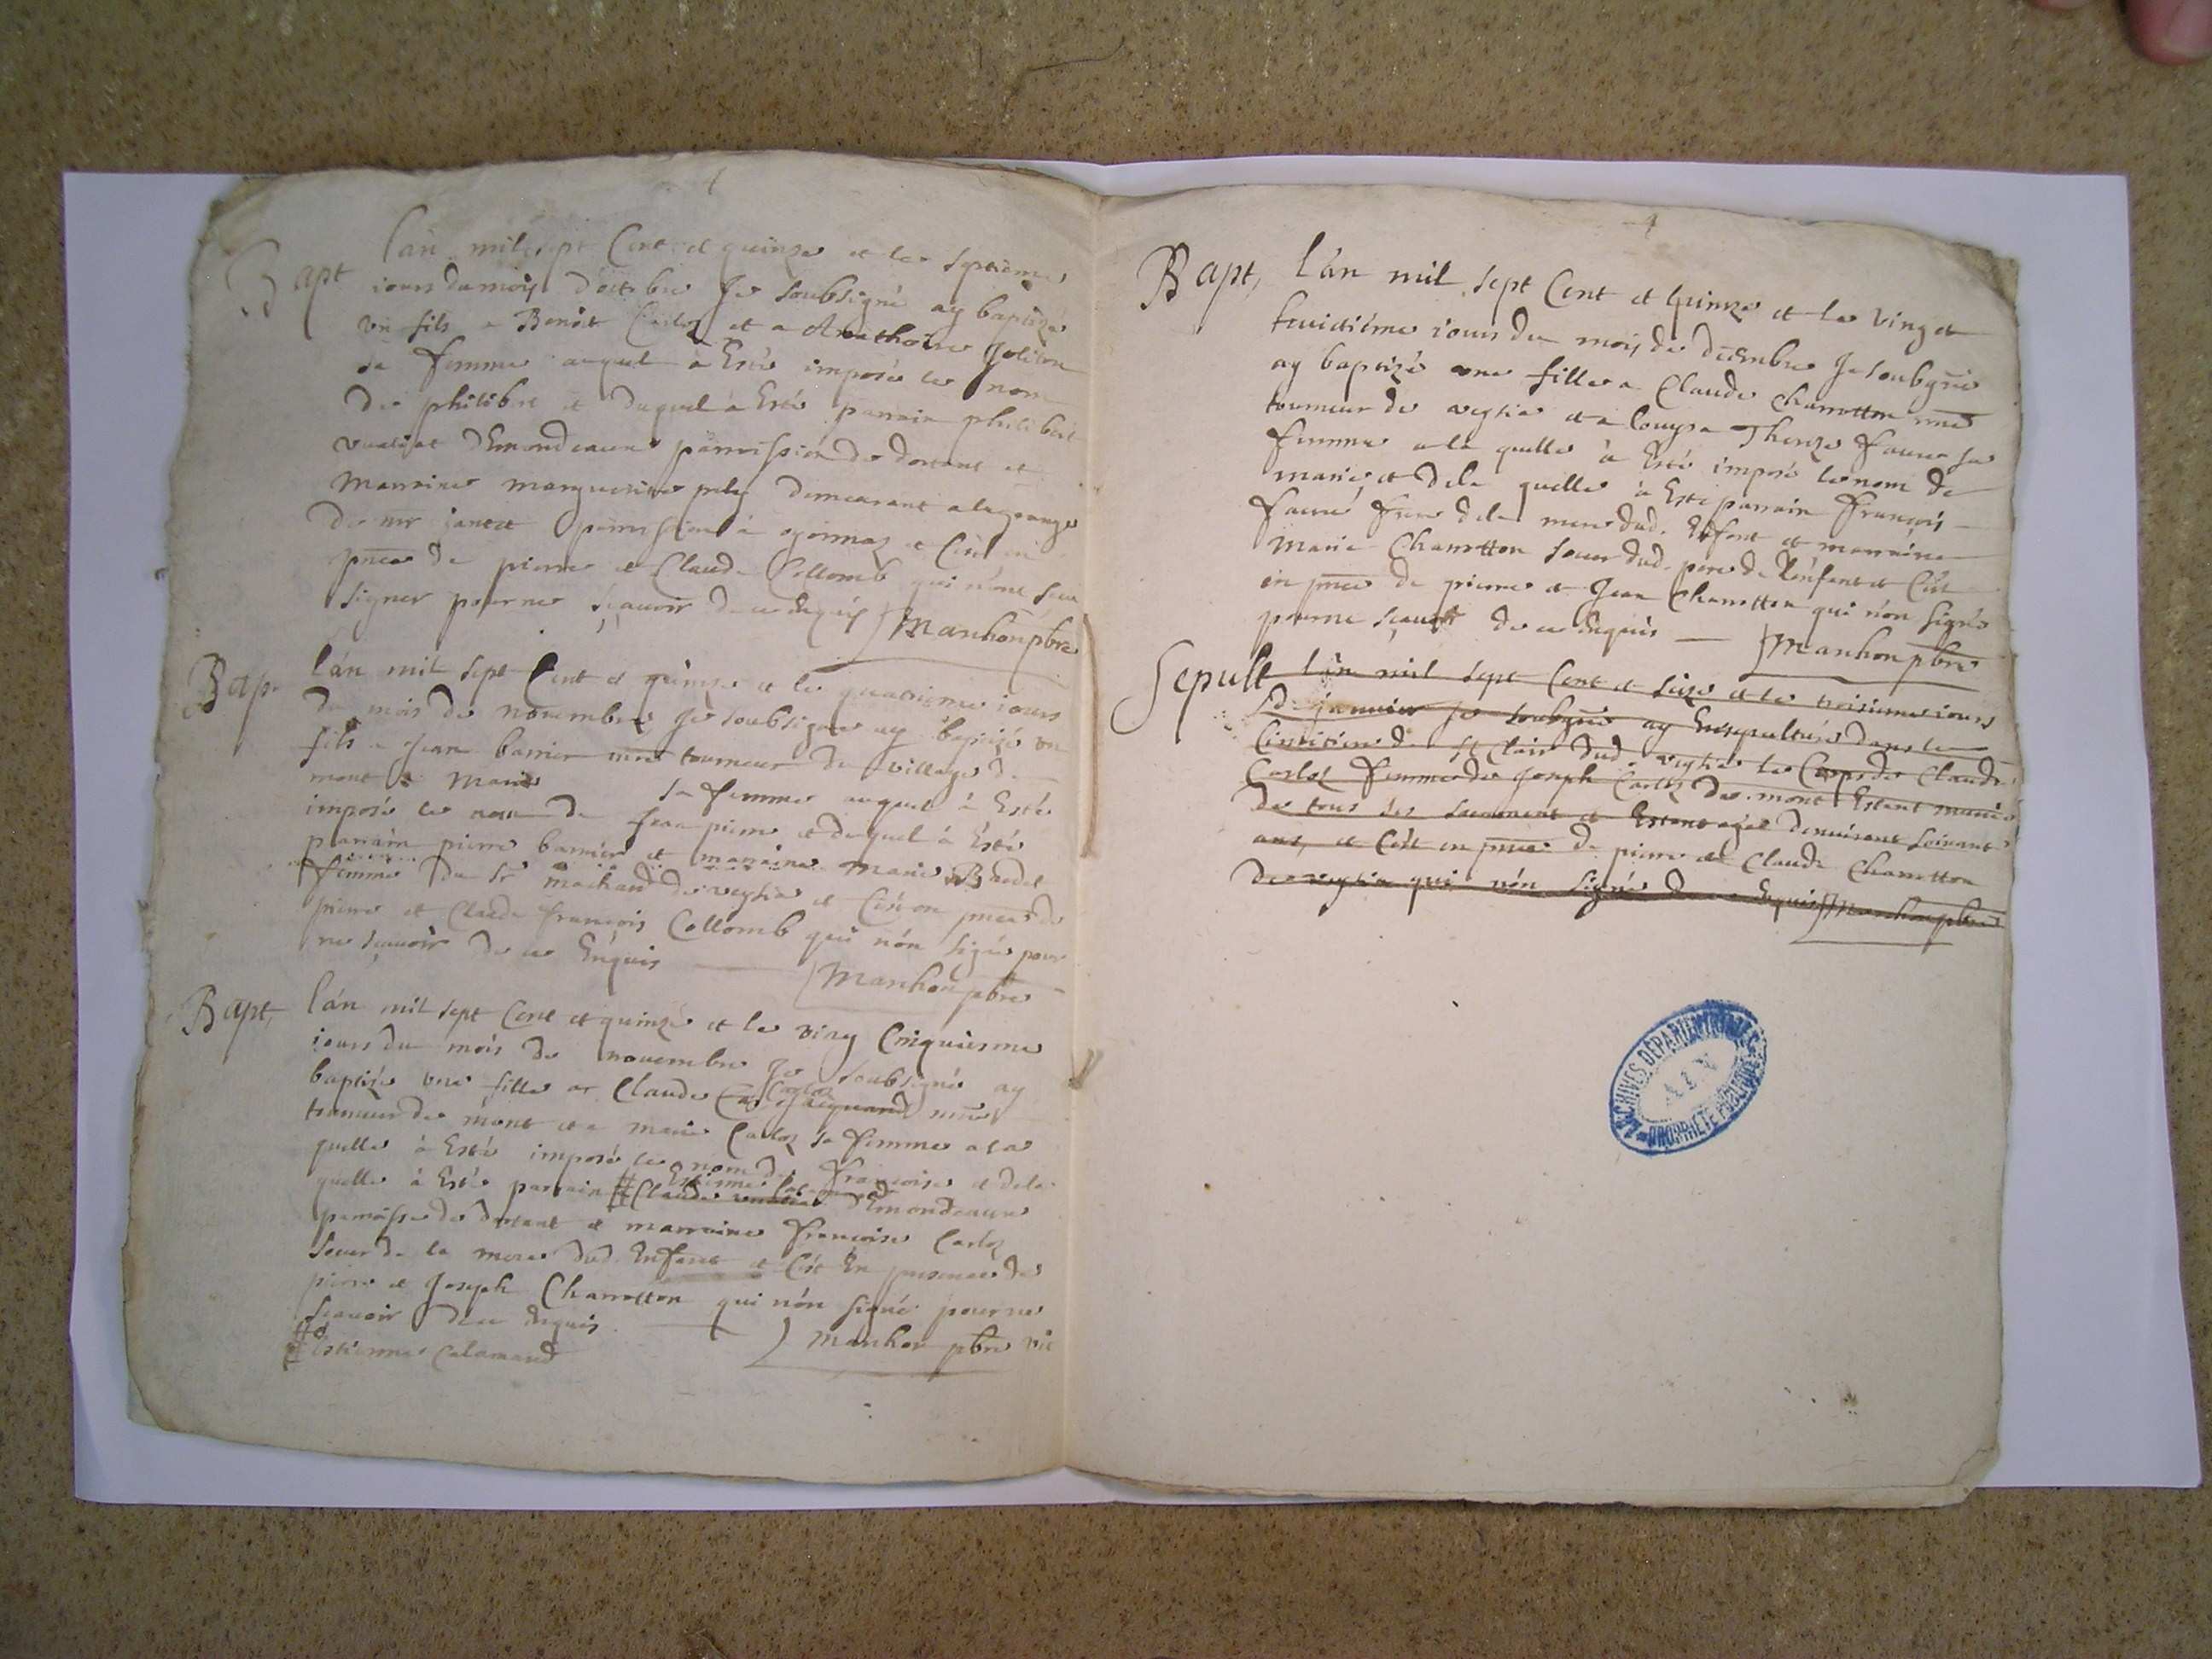 Bapt l'an mil sept Cent et quinze et le septieme
iours du mois d'octobre Je soubsigné ay baptizé
un fils a Benoit Carloz et a Anthoine
sa femme auquel à Esté imposé le nom
de philibert et duquel à Esté parrain philibert
d'Emondeaux parroissien de dortant et
Marraine marguerite demeurant a la grange
de mr parroissien à ogonnaz et C'est en
pñce de pierre et Claude Collomb qui n'ont sceu
signer pour ne sçavoir de ce Enquis Manhon pbre
Bap. l'an mil sept Cent et quinze et le quatrieme iours
du mois de novembre Je soubsigne ay baptizé un
fils a Jean barrier mre tourneur du village de
mont et Marie sa femme auquel à Esté
imposé le nom de Jean pierre et duquel à Esté
parrain pierre barrier et marraine Marie Baudet
femme du Sr machard de veyzia et C'est en pñce de
pierre et Claude françois Collomb qui n'on signé pour
ne sçavoir de ce Enquis Manhon pbre
Bapt, l'an mil sept Cent et quinze et le ving Cinquiesme
iours du mois de novembre Je soubsigné ay
baptizé une fille a Claude Carloz Jacquand mre
tourneur de mont et a marie Carloz sa femme a la
quelle à Esté imposé le nom de françoise et de la
quelle à Esté parrain # Claude Estienne d'Emondeaux
parroisse de dortant et marraine françoise Carloz
soeur de la mere dud. Enfant et C'est En presence de
pierre et Joseph Charretton qui n'on signé pour ne
scavoir de ce Enquis
# Estienne Calamand Manhon pbre vic
Bapt, l'an mil sept Cent et quinze et le ving et
huictiéme iours du mois de decembre Je soubsgné
ay baptizé une fille a Claude Charretton mre
tourneur de veyzia et a louyse Thereze faure sa
femme a la quelle à Esté imposé le nom de
marie, et de la quelle à Esté parrain françois
faure frere de la mere dud. Enfant et marraine
Marie Charretton soeur dud. pere de l'enfant et C'est
in pñce de pierre et Jean Charretton qui n'on signé
pour ne sçavoir de ce Enquis Manhon pbre
Sepult l'an mil sept Cent et seize et le troisieme iours
de janvier Je soubsgné ay Ensepulturé dans le
Cimitiere de St Clair dud. veyzia le Corps de Claude
Carloz femme de Joseph Carloz de mont Estant munie
de tous ses sacrement et Estant agée d'environt soixante
ans, et C'est en pñce de pierre et Claude Charretton
de veyzia qui n'on signé de ce Enquis Manhon pbre
ARCHIVES DÉPARTEMENTALES
AIN
PROPRIÉTÉ PUBLIQUE